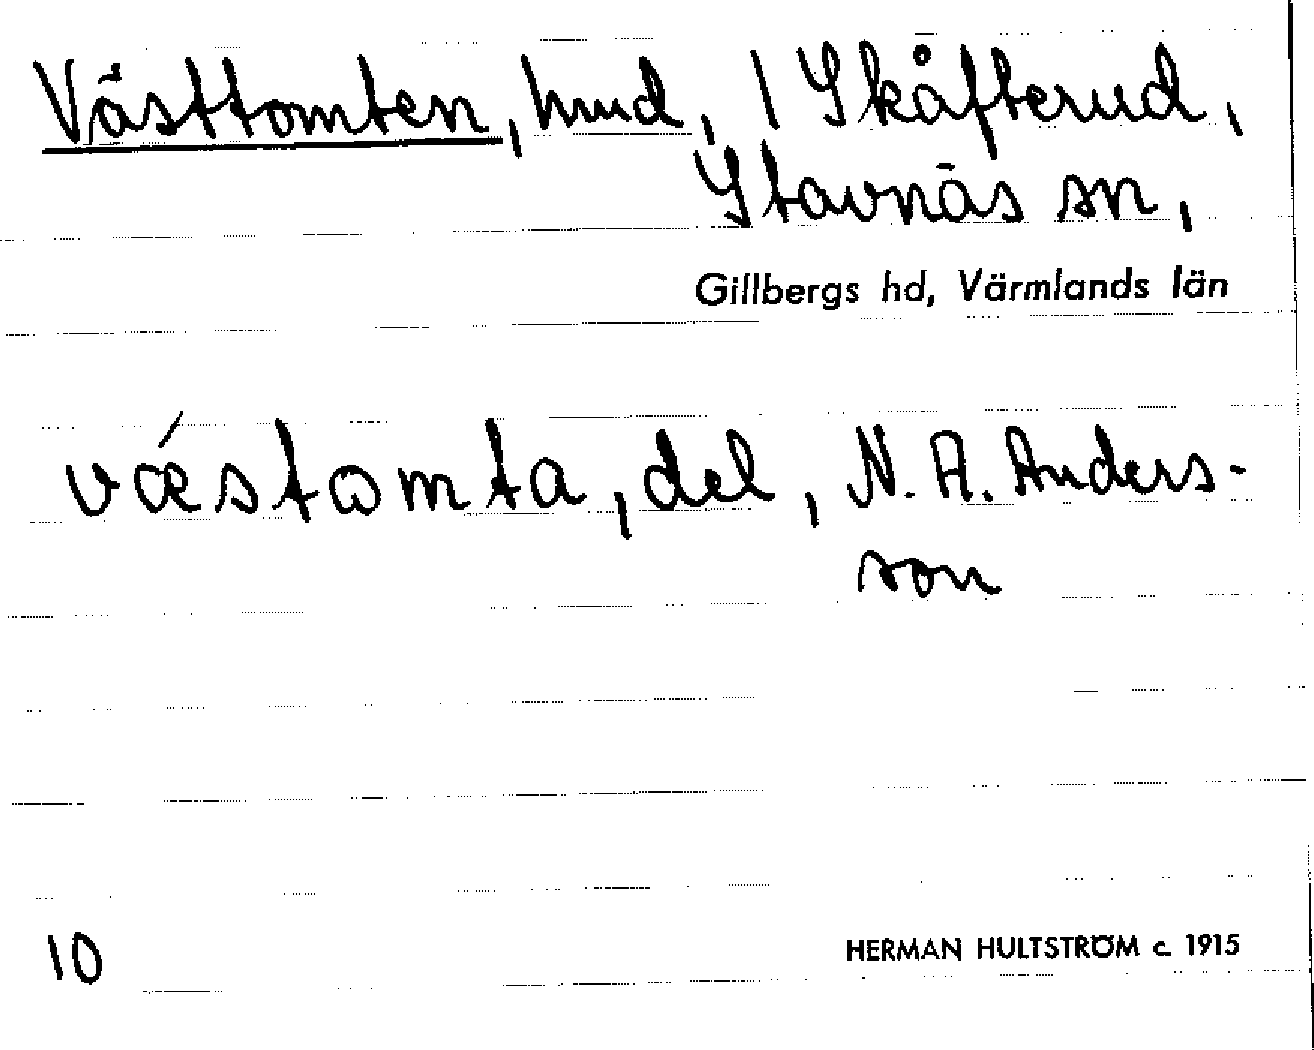 Västtomten, hmd, 1 Skåfterud,
Stavnäs sn,
Gillbergs hd, Värmlands län
vǽstωmta, del, N. A. Anders-
son
10
HERMAN HULTSTRÖM c. 1915